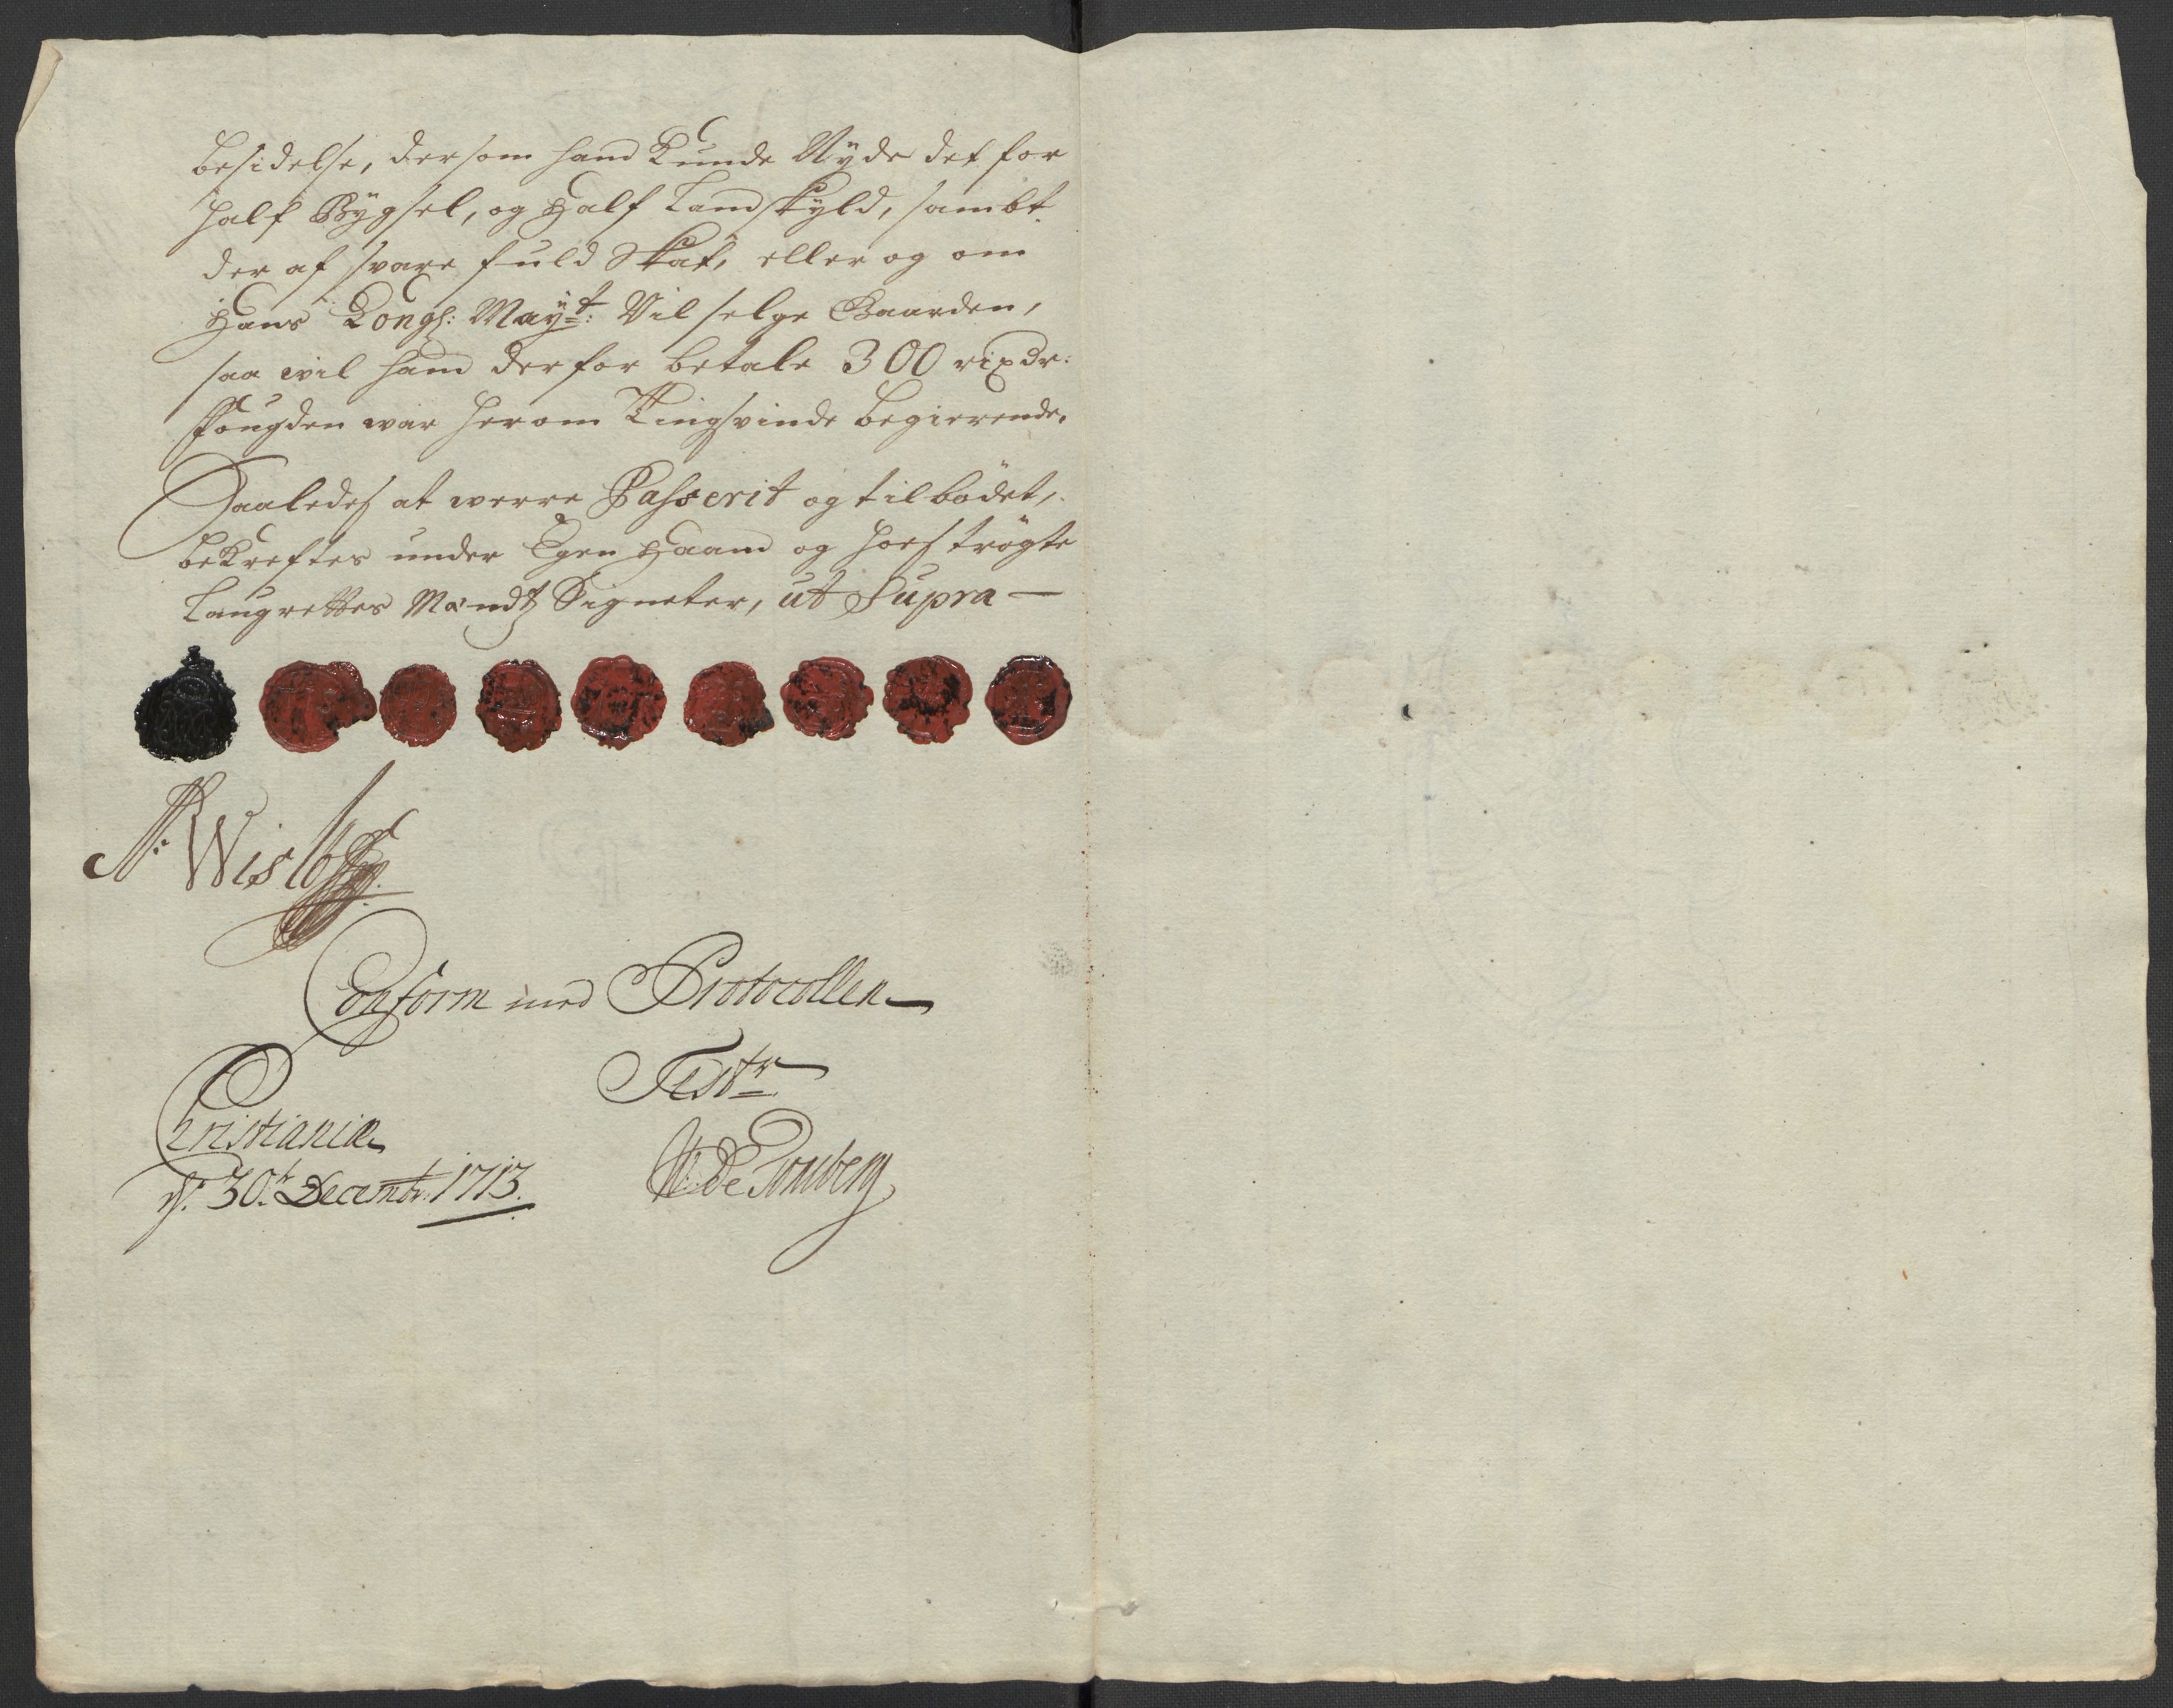 besidelse, dersom hand Kunde Nyde det for
half Bygsel, og Half Landskyld, sambt
der af svare fuld Skat, eller og om
Hans Kongl: Mayt: Vil selge Gaarden,
saa wil hand derfor betale 300 rixdr:
ffougden war herom Tingsvinde begierende.
Saaledes at werre Passerit og tilbödet,
beKreftes under Egen Haand og hoes trögte
Laugrettes Mændz Signeter, ut Supra —
N: Wisløff
Conform med Protocollen
Testr
Cristiania
d. 30.t Decembr. 1713.
De Tonsberg